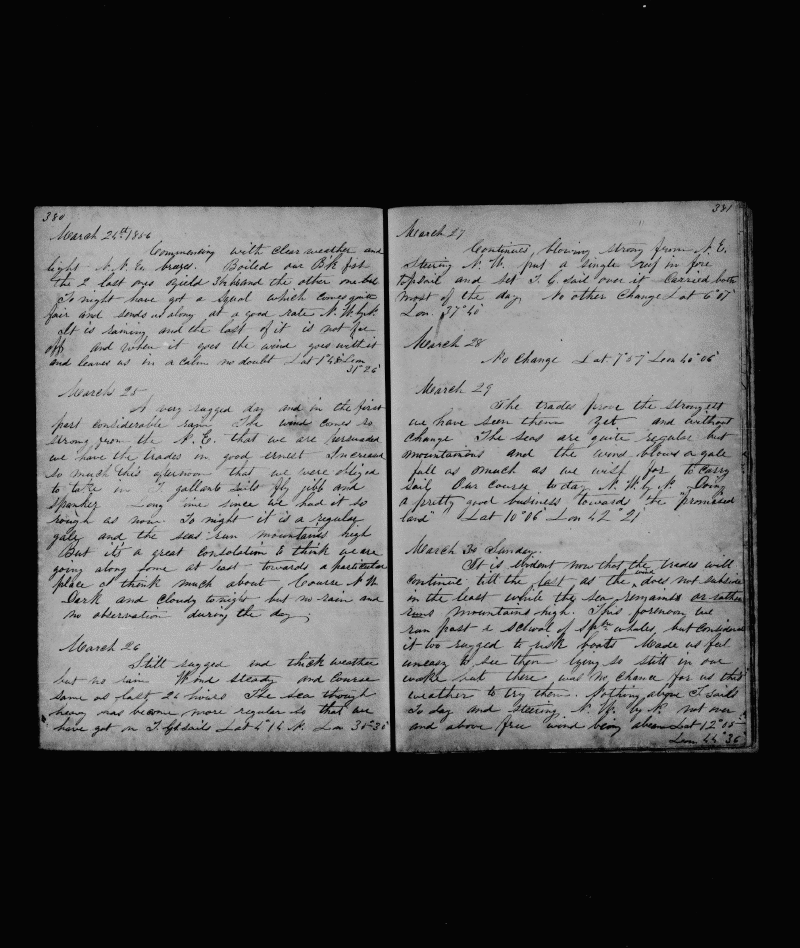 380
March 24th 1856
Commenting with clear weather and
light N.N.E. brazes. Boiled our B'k fish
the 2 last ones yield 3 brand the other one bbl
To night have got a squal which comes quite
fair and sends us along at a good rate N.W. by N.
It is raining and the last of it is not far
off and when it goes the wind goes with it
and leaves us in a calm no doubt Lat 1°48 Lon
31°26
March 25
A very rugged day and in the first
part considerable rain The wind comes so
strong from the N.E. that we are persuaded
we have the trades in good ernest Increased
so much this afternoon that we were obliged
to take in T. gallants sails fly jibb and
spanker Long time since we had it so
rough as now. To night it is a regular
gale and the seas run mountains high
But it's a great consolation to think we are
going along some at least towards a particular
place I think much about, Course N.W.
Dark and Cloudy tonight but no rain and
no observation during the day
March 26
Still rugged and thick weather
but no rain Wind steady and Course
same as last 24 hours The sea though
heavy has become more regular so that we
have got on T. G. sails Lat 4°14 N. Lon 35°36
381
March 27
Continues, blowing strong from N.E.
steering N.W. put a single reef in fore
topsail and set T.G. sail over it Carried both
most of the day No other Change Lat 6°07
Lon. 37°40
March 28
No Change Lat 7°57 Lon 40°06
March 29
The trades prove the strongest
we have seen them Yet and without
change The seas are quite regular but
mountainous and the wind blows a gale
full as much as we wish for to carry
sail Our course to day N.W. by N. Doing
a pretty good business toward the "promised
land" Lat 10°06 Lon 42°21
March 30 Sunday.
It is evident now that the trades will
continue till the last as the wind does not subside
in the least while the sea remains or rather
runs mountains high. This forenoon we
ran past a school of Sp'm whales, but considered
it too rugged to risk boats Made us feel
uneasy to see them lying so still in our
wake but there was no chance for us this
weather to try them. Nothing above T. sails
To day and steering N.W. by N. not over
and above free wind being abeam Lat 12°05
Lon 44°36